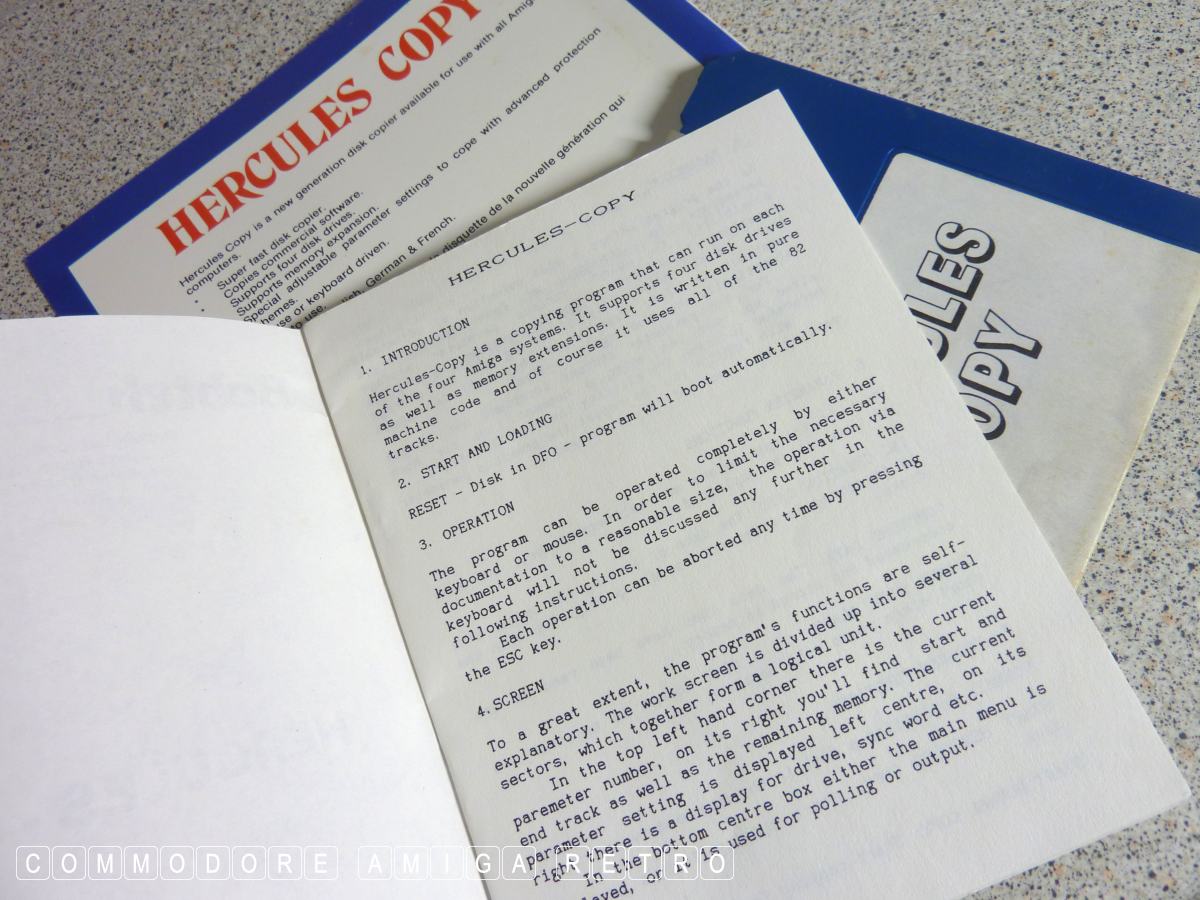 HERCULES COPY
Hercules Copy is a new generation disk copier available for use with all Amiga
computers.
• Super fast disk copier.
• Copies commercial software.
Supports four disk drives.
Supports memory expansion.
Special adjustable parameter settings to cope with advanced protection
hemes.
se or keyboard driven.
to use.
lish, German & French.
disquette de la nouvelle génération qui
ULES
OPY
HERCULES-COPY
1. INTRODUCTION
Hercules-Copy is a copying program that can run on each
of the four Amiga systems. It supports four disk drives
as well as memory extensions. It is written in pure
machine code and of course it uses all of the 82
tracks.
2. START AND LOADING
RESET - Disk in DFO - program will boot automatically.
3. OPERATION
The program can be operated completely by either
keyboard or mouse. In order to limit the necessary
documentation to a reasonable size, the operation via
keyboard will not be discussed any further in the
following instructions.
Each operation can be aborted any time by pressing
the ESC key.
4.SCREEN
To a great extent, the program's functions are self-
explanatory. The work screen is divided up into several
sectors, which together form a logical unit.
In the top left hand corner there is the current
paremeter number, on its right you'll find start and
end track as well as the remaining memory. The current
parameter setting is displayed left centre, on its
right there is a display for drive, sync word etc.
In the bottom centre box either the main menu is
layed, or it is used for polling or output.
COMMODORE AMIGA RETRO